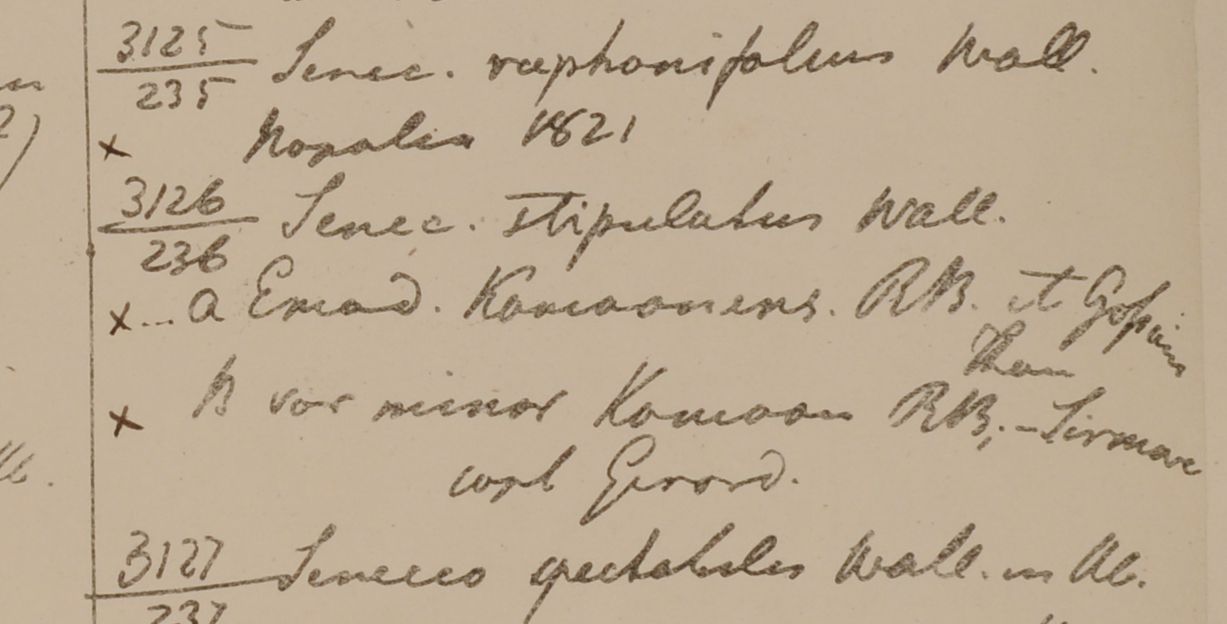 3125 Senec. raphanifolius Wall.
235
x Napalia 1821
3126 Senec. stipulatus Wall.
236
x... a Emod. Kamaonens. RB. et Gosain
Than
x B var minor Kamaon RB. - Sirmore
Capt Gerard.
3127 Senecio spectabilis Wall. in Hb.
237